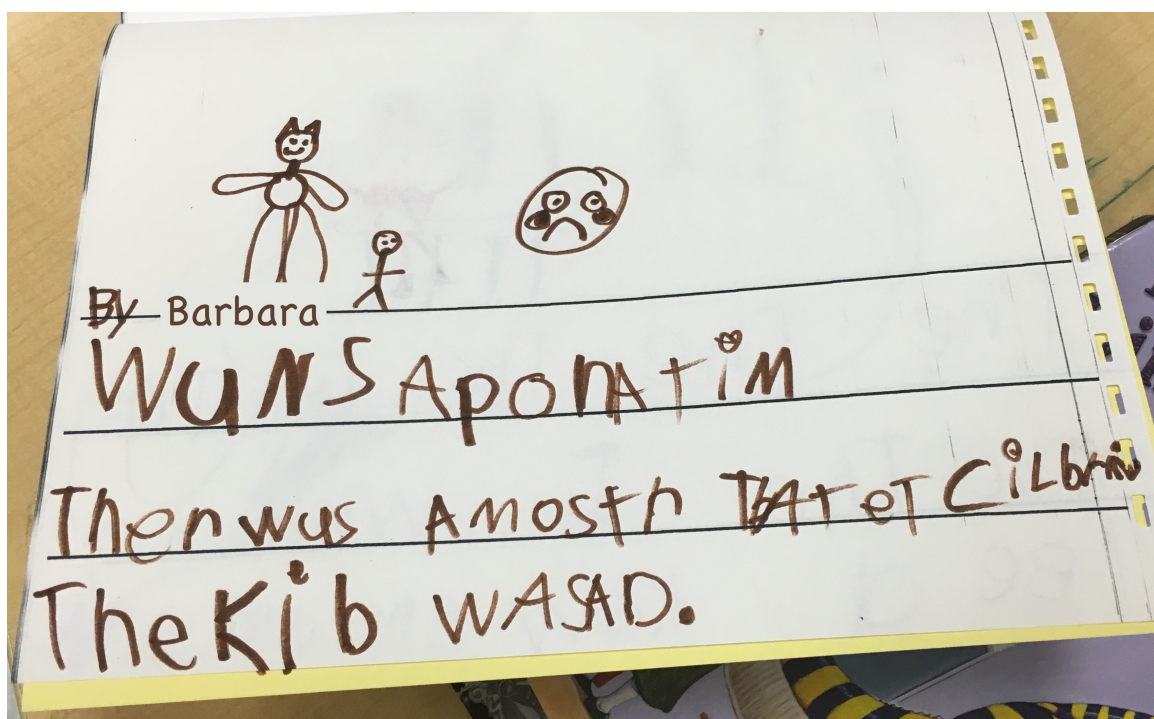 By Barbara
WuNS APonA tiM
Then wus A mostn THAt eT CiLbrin
The Kib WA SAD.